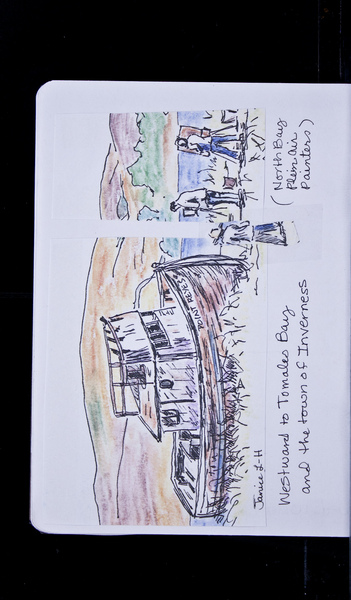 POINT REYES
Janice L-H
Westward to Tomales Bay
and the town of Inverness
(North Bay
Plein air
Painters)